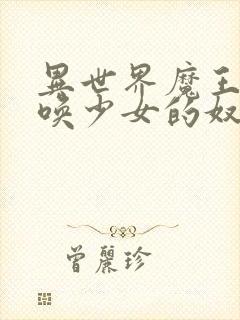 異世界魔王
喚少女的奴
曾麗珍